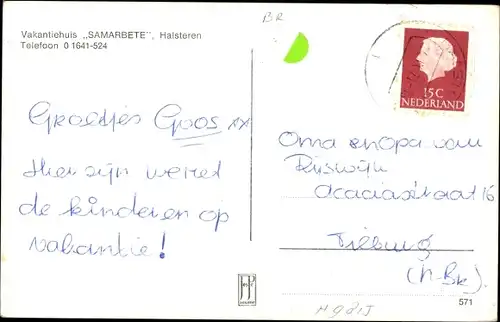 Vakantiehuis „SAMARBETE”, Halsteren
Telefoon 0 1641-524
BR
15C
NEDERLAND
Groetjes Goos xx
Hier zijn we met
de kinderen op
vakantie!
Oma en opa van
Rijswijk
Acaciastraat 16
Tilburg
(N-Br.)
571